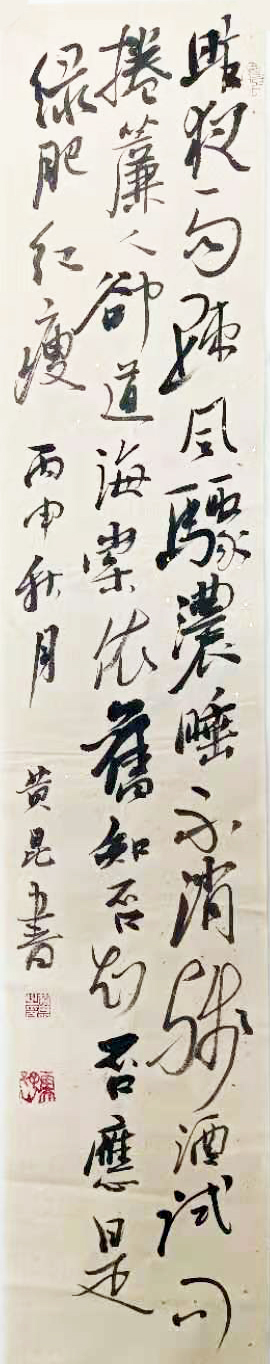 昨夜雨疎風驟濃睡不消殘酒試問
捲簾人卻道海棠依舊知否知否應是
綠肥紅瘦 丙申秋月 黄昆書